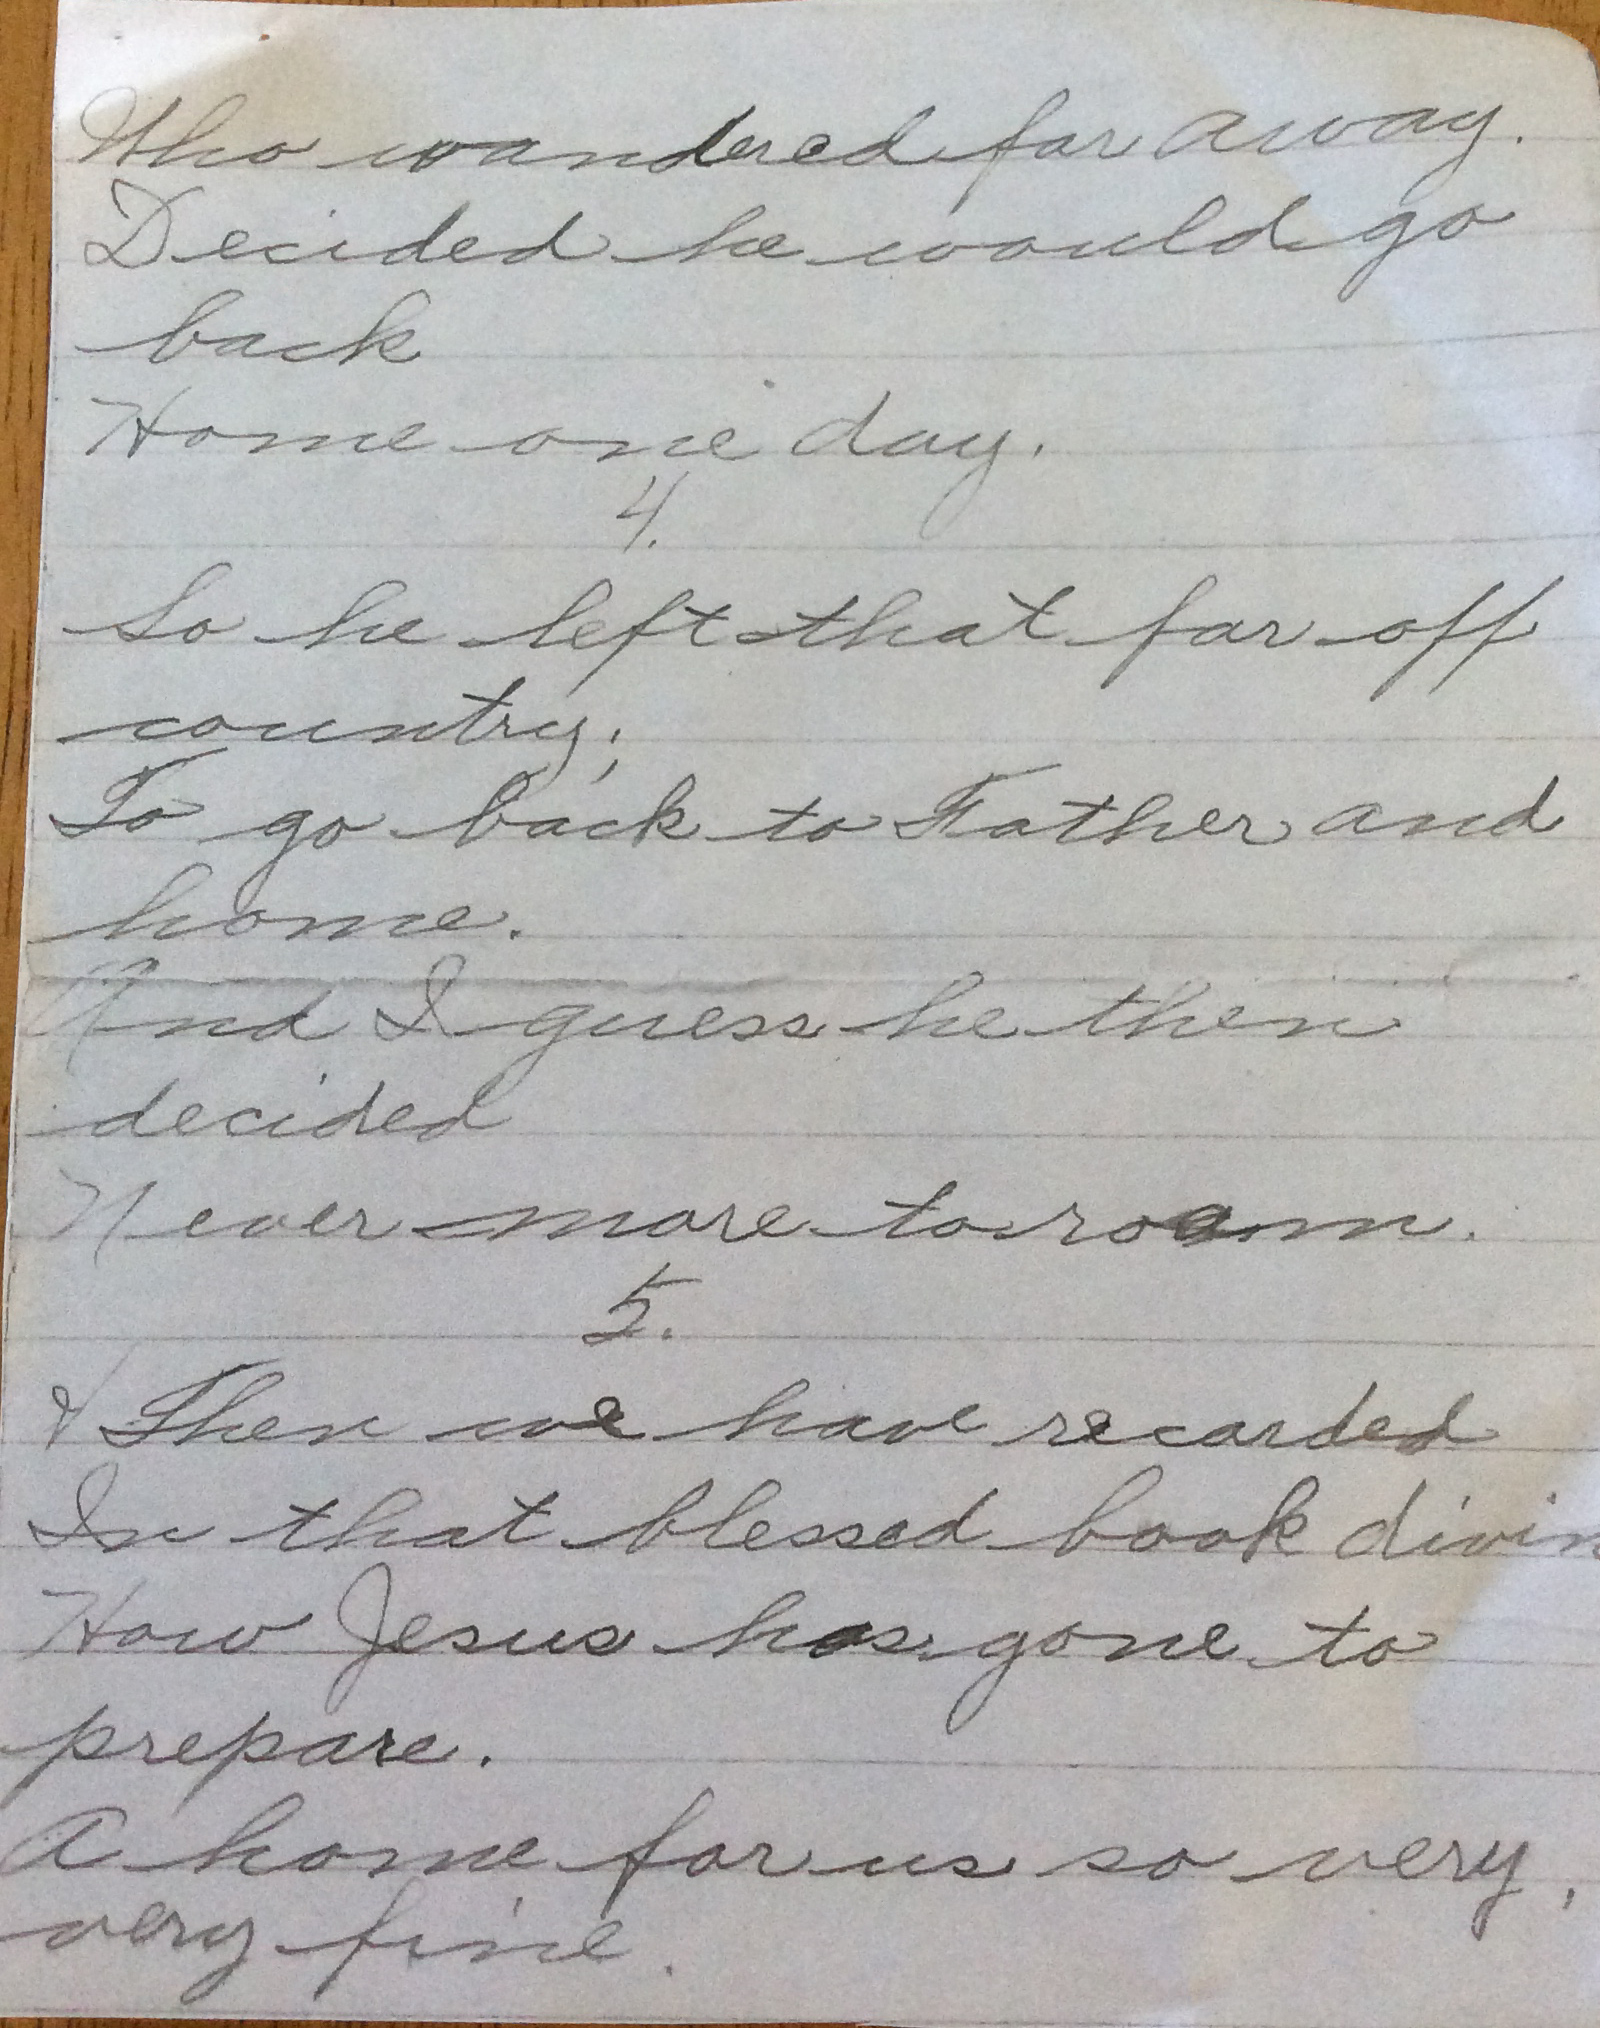 Who wandered far away.
Decided he would go
back
Home one day.
4.
So he left that far off
country;
To go back to Father and
home.
And I guess he then
decided
Never more to roam.
5.
& Then we have recorded
In that blessed book divin
How Jesus has gone to
prepare.
A home for us so very,
very fine.